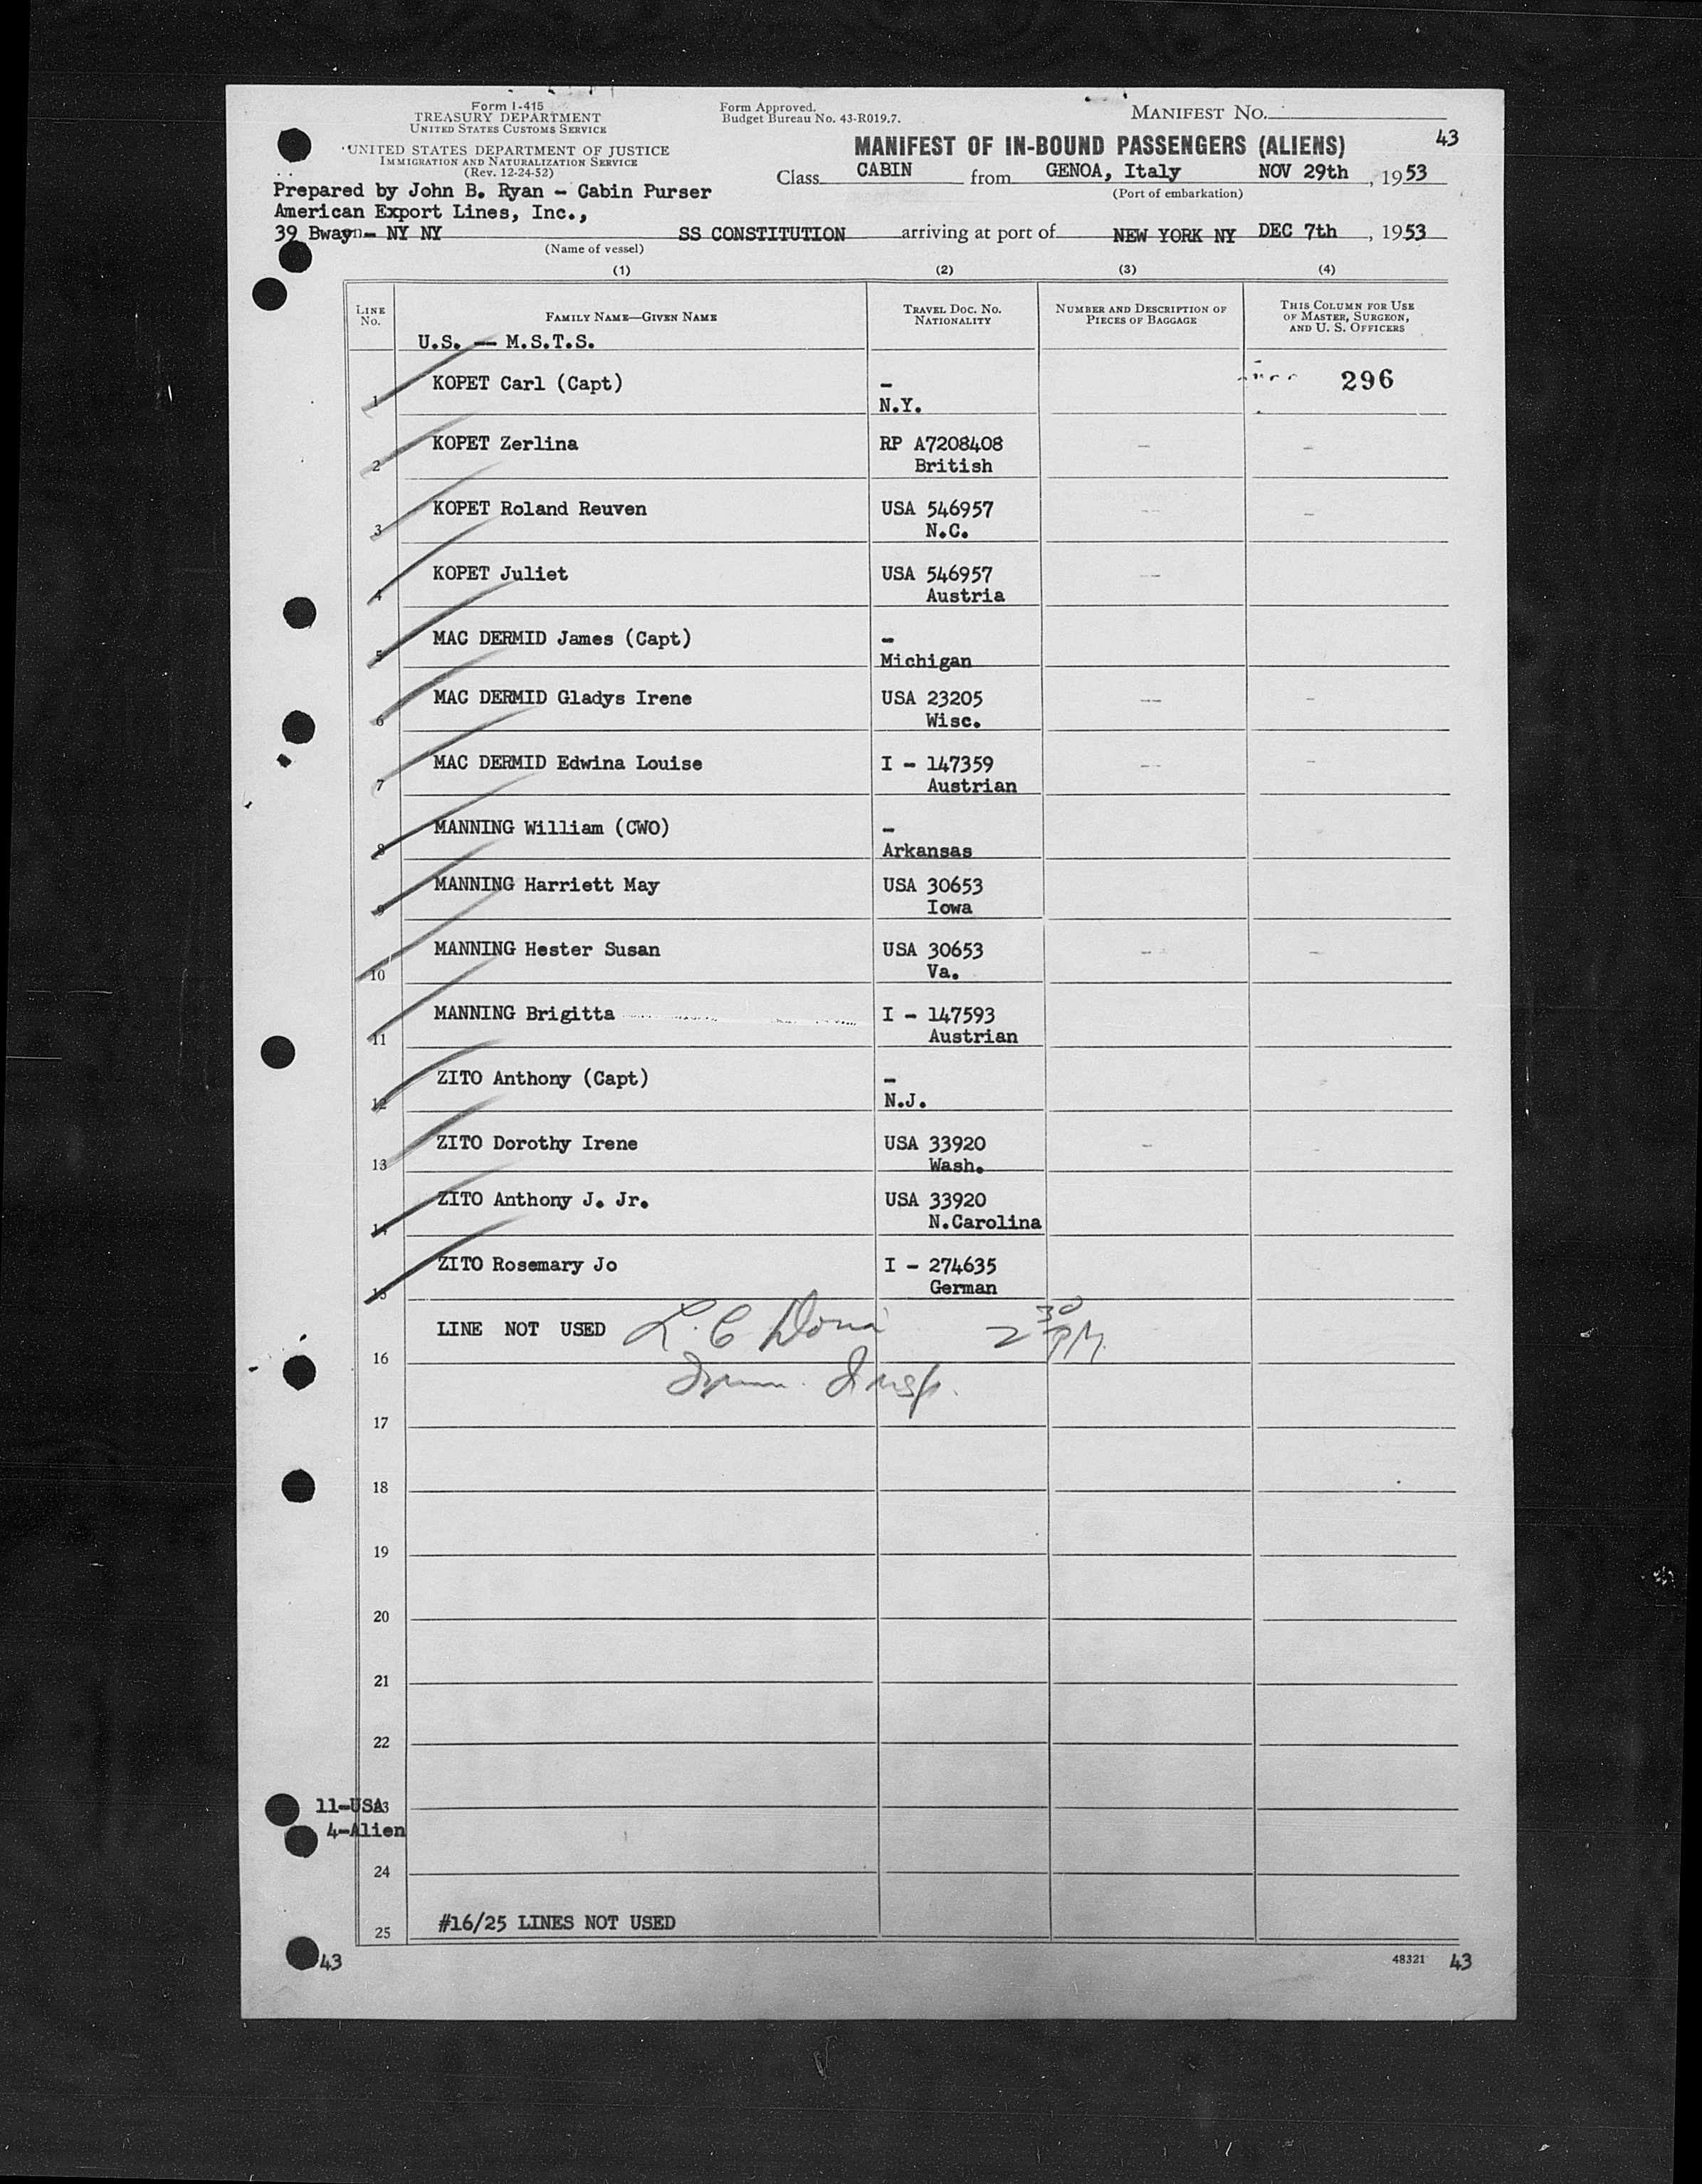 Form I-415
TREASURY DEPARTMENT
UNITED STATES CUSTOMS SERVICE
UNITED STATES DEPARTMENT OF JUSTICE
IMMIGRATION AND NATURALIZATION SERVICE
(Rev. 12-24-52)
Form Approved.
Budget Bureau No. 43-R019.7.
MANIFEST NO.
43
MANIFEST OF IN-BOUND PASSENGERS (ALIENS)
Class CABIN from GENOA, Italy NOV 29th, 1953
(Port of embarkation)
Prepared by John B. Ryan - Cabin Purser
American Export Lines, Inc.,
39 Bway - NY NY SS CONSTITUTION arriving at port of NEW YORK NY DEC 7th, 1953
(Name of vessel)
(1) (2) (3) (4)
LINE No. FAMILY NAME—GIVEN NAME TRAVEL DOC. NO. NATIONALITY NUMBER AND DESCRIPTION OF PIECES OF BAGGAGE THIS COLUMN FOR USE OF MASTER, SURGEON, AND U. S. OFFICERS
U.S. -- M.S.T.S.
1 KOPET Carl (Capt) - 296
N.Y.
2 KOPET Zerlina RP A7208408 - -
British
3 KOPET Roland Reuven USA 546957 -- -
N.C.
4 KOPET Juliet USA 546957 --
Austria
5 MAC DERMID James (Capt) -
Michigan
6 MAC DERMID Gladys Irene USA 23205 -- -
Wisc.
7 MAC DERMID Edwina Louise I - 147359 -- -
Austrian
8 MANNING William (CWO) -
Arkansas
9 MANNING Harriett May USA 30653
Iowa
10 MANNING Hester Susan USA 30653 -- -
Va.
11 MANNING Brigitta I - 147593
Austrian
12 ZITO Anthony (Capt) -
N.J.
13 ZITO Dorothy Irene USA 33920 -
Wash.
14 ZITO Anthony J. Jr. USA 33920
N.Carolina
15 ZITO Rosemary Jo I - 274635
German
16 LINE NOT USED L. C 2 30 PM
Imm. Insp.
17
18
19
20
21
22
11-USA 23
4-Alien
24
25 #16/25 LINES NOT USED
43 48321 43